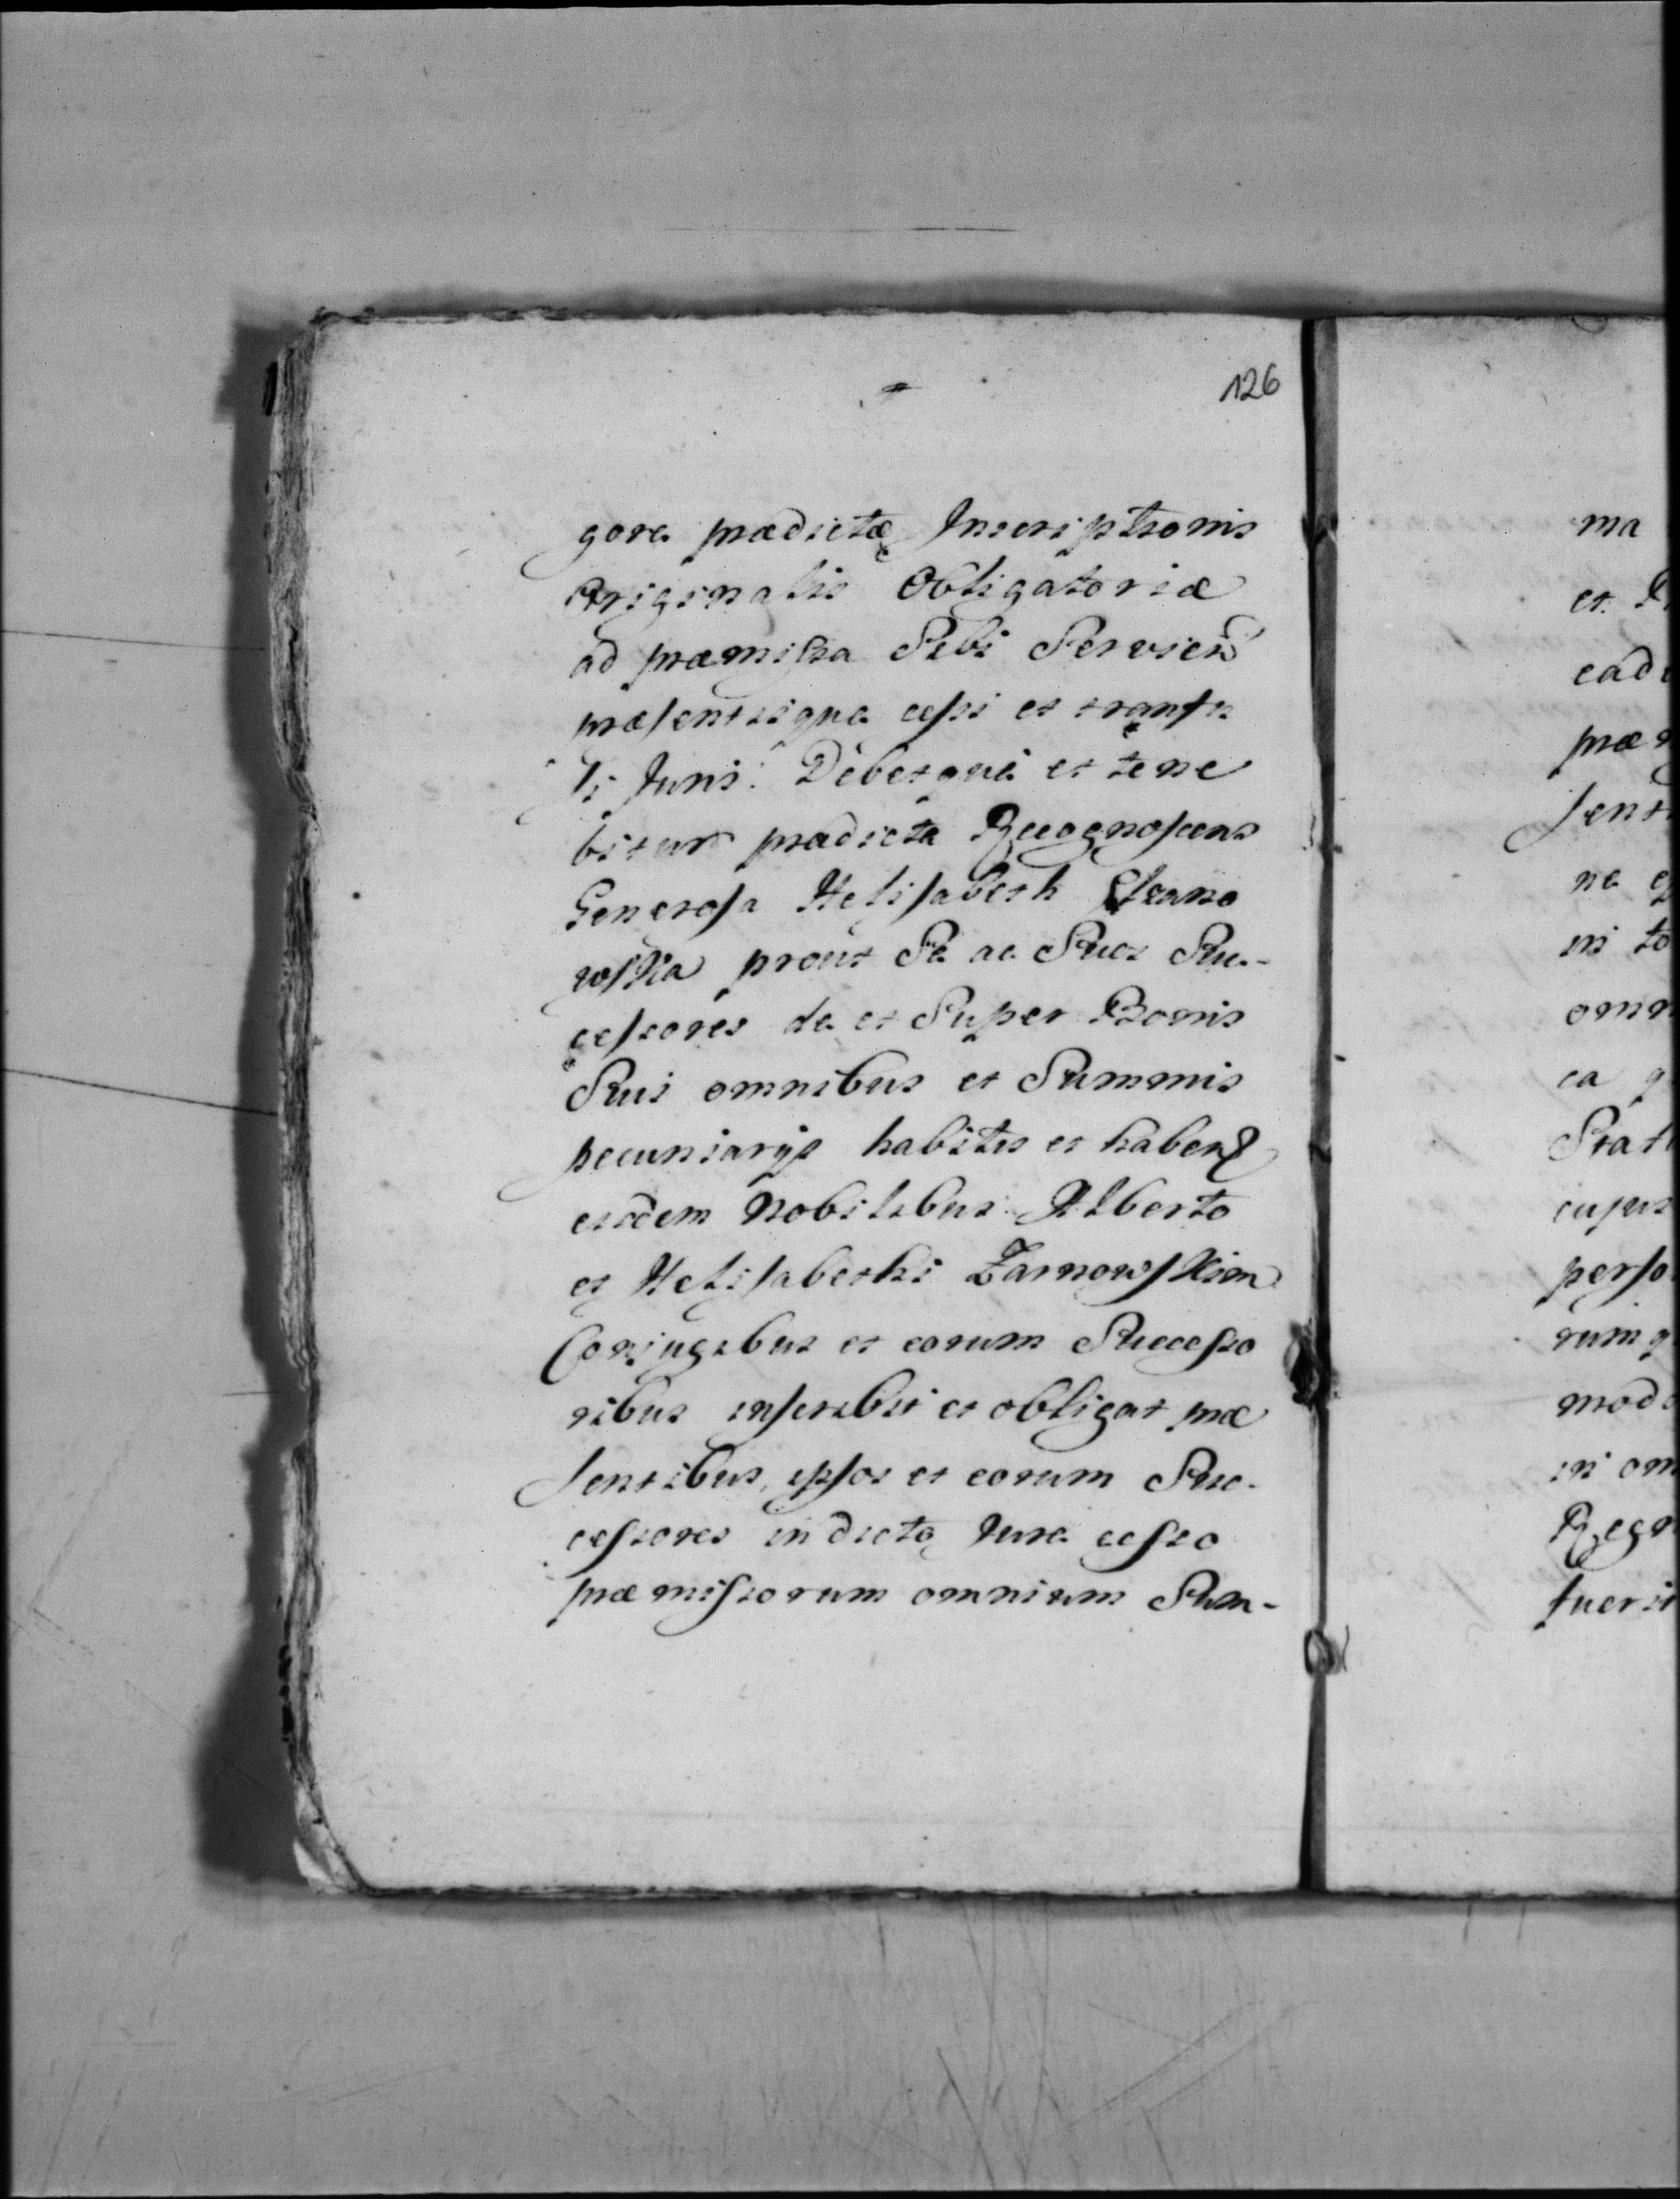 126
gore prædictæ Inscriptionis
Originalis Obligatoriæ
ad præmissa Sibi Servien
præsentisque cessi et transfu
si Juris. Debetque et tene
bitur prædicta Recognoscens
Generosa Helisabeth
prout Se ac Suos Suc-
cessores de et Super Bonis
Suis omnibus et Summis
pecuniarijs habitis et haben
eisdem Nobilibus Alberto
et Helisabethi Zarnowskim
Conjugibus et eorum Successo
ribus inscribit et obligat præ
sentibus, ipsos et eorum Suc-
cessores in dicto Jure cesso
præmissorum omnium Sum-
ma
et
eade
præ
sent
ne
ni to
omn
ea q
Stat
cujus
perso
rum q
modo
in om
Regn
fuerit